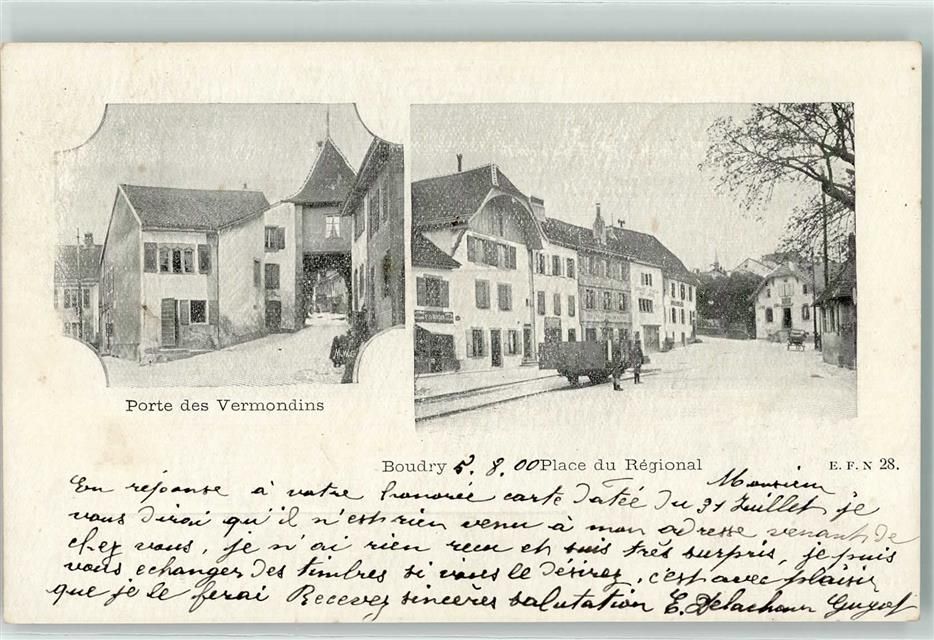 Porte des Vermondins
Boudry 5. 8. 00 Place du Régional
E. F. N 28.
Monsieur
En réponse à votre honorée carte datée du 31 Juillet je
vous dirai qu'il n'est rien venu à mon adresse venant de
chez vous, je n'ai rien reçu et suis très surpris, je puis
vous echanger des timbres si vous le désirez, c'est avec plaisir
que je le ferai Recevez sincères salutation E.